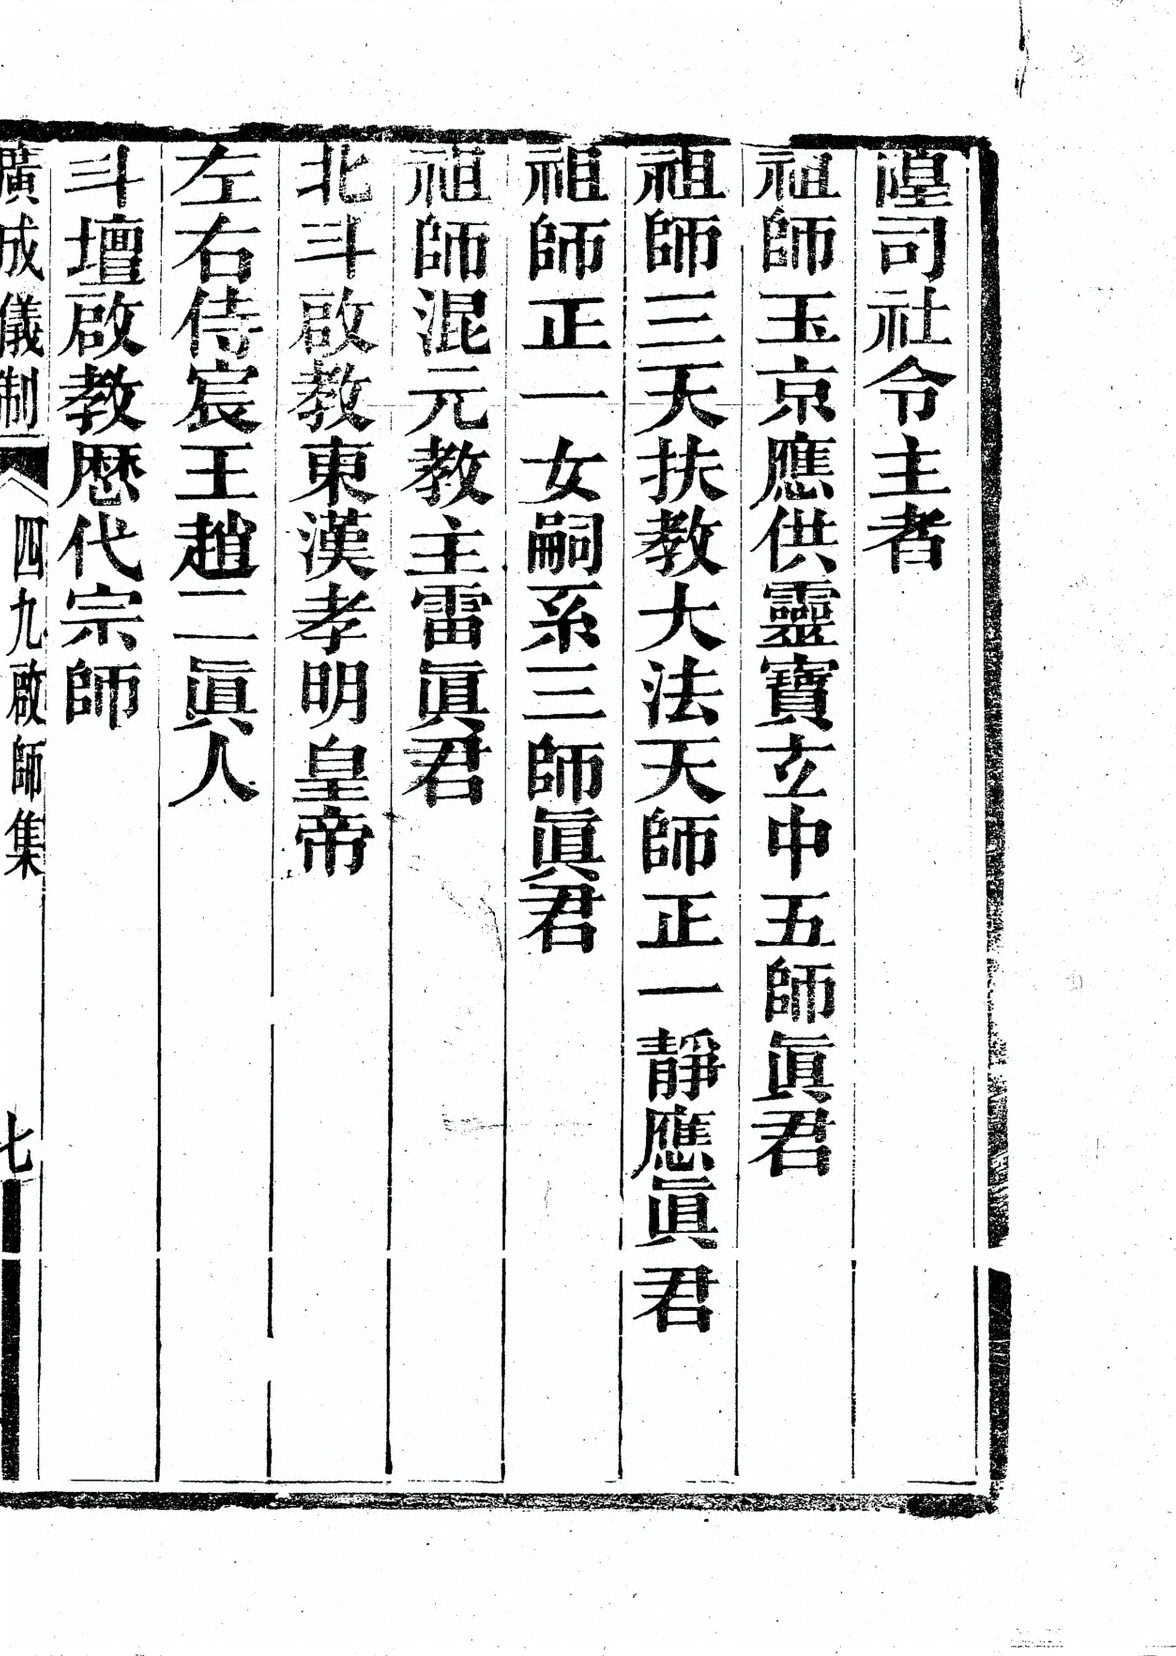 隍司社令主者
祖師玉京應供靈寶立中五師眞君
祖師三天扶教大法天師正一靜應眞君
祖師正一女嗣系三師眞君
祖師混元教主雷眞君
北斗啟教東漢孝明皇帝
左右侍宸王趙二眞人
斗壇啟教歷代宗師
廣成儀制 四九啟師集 七